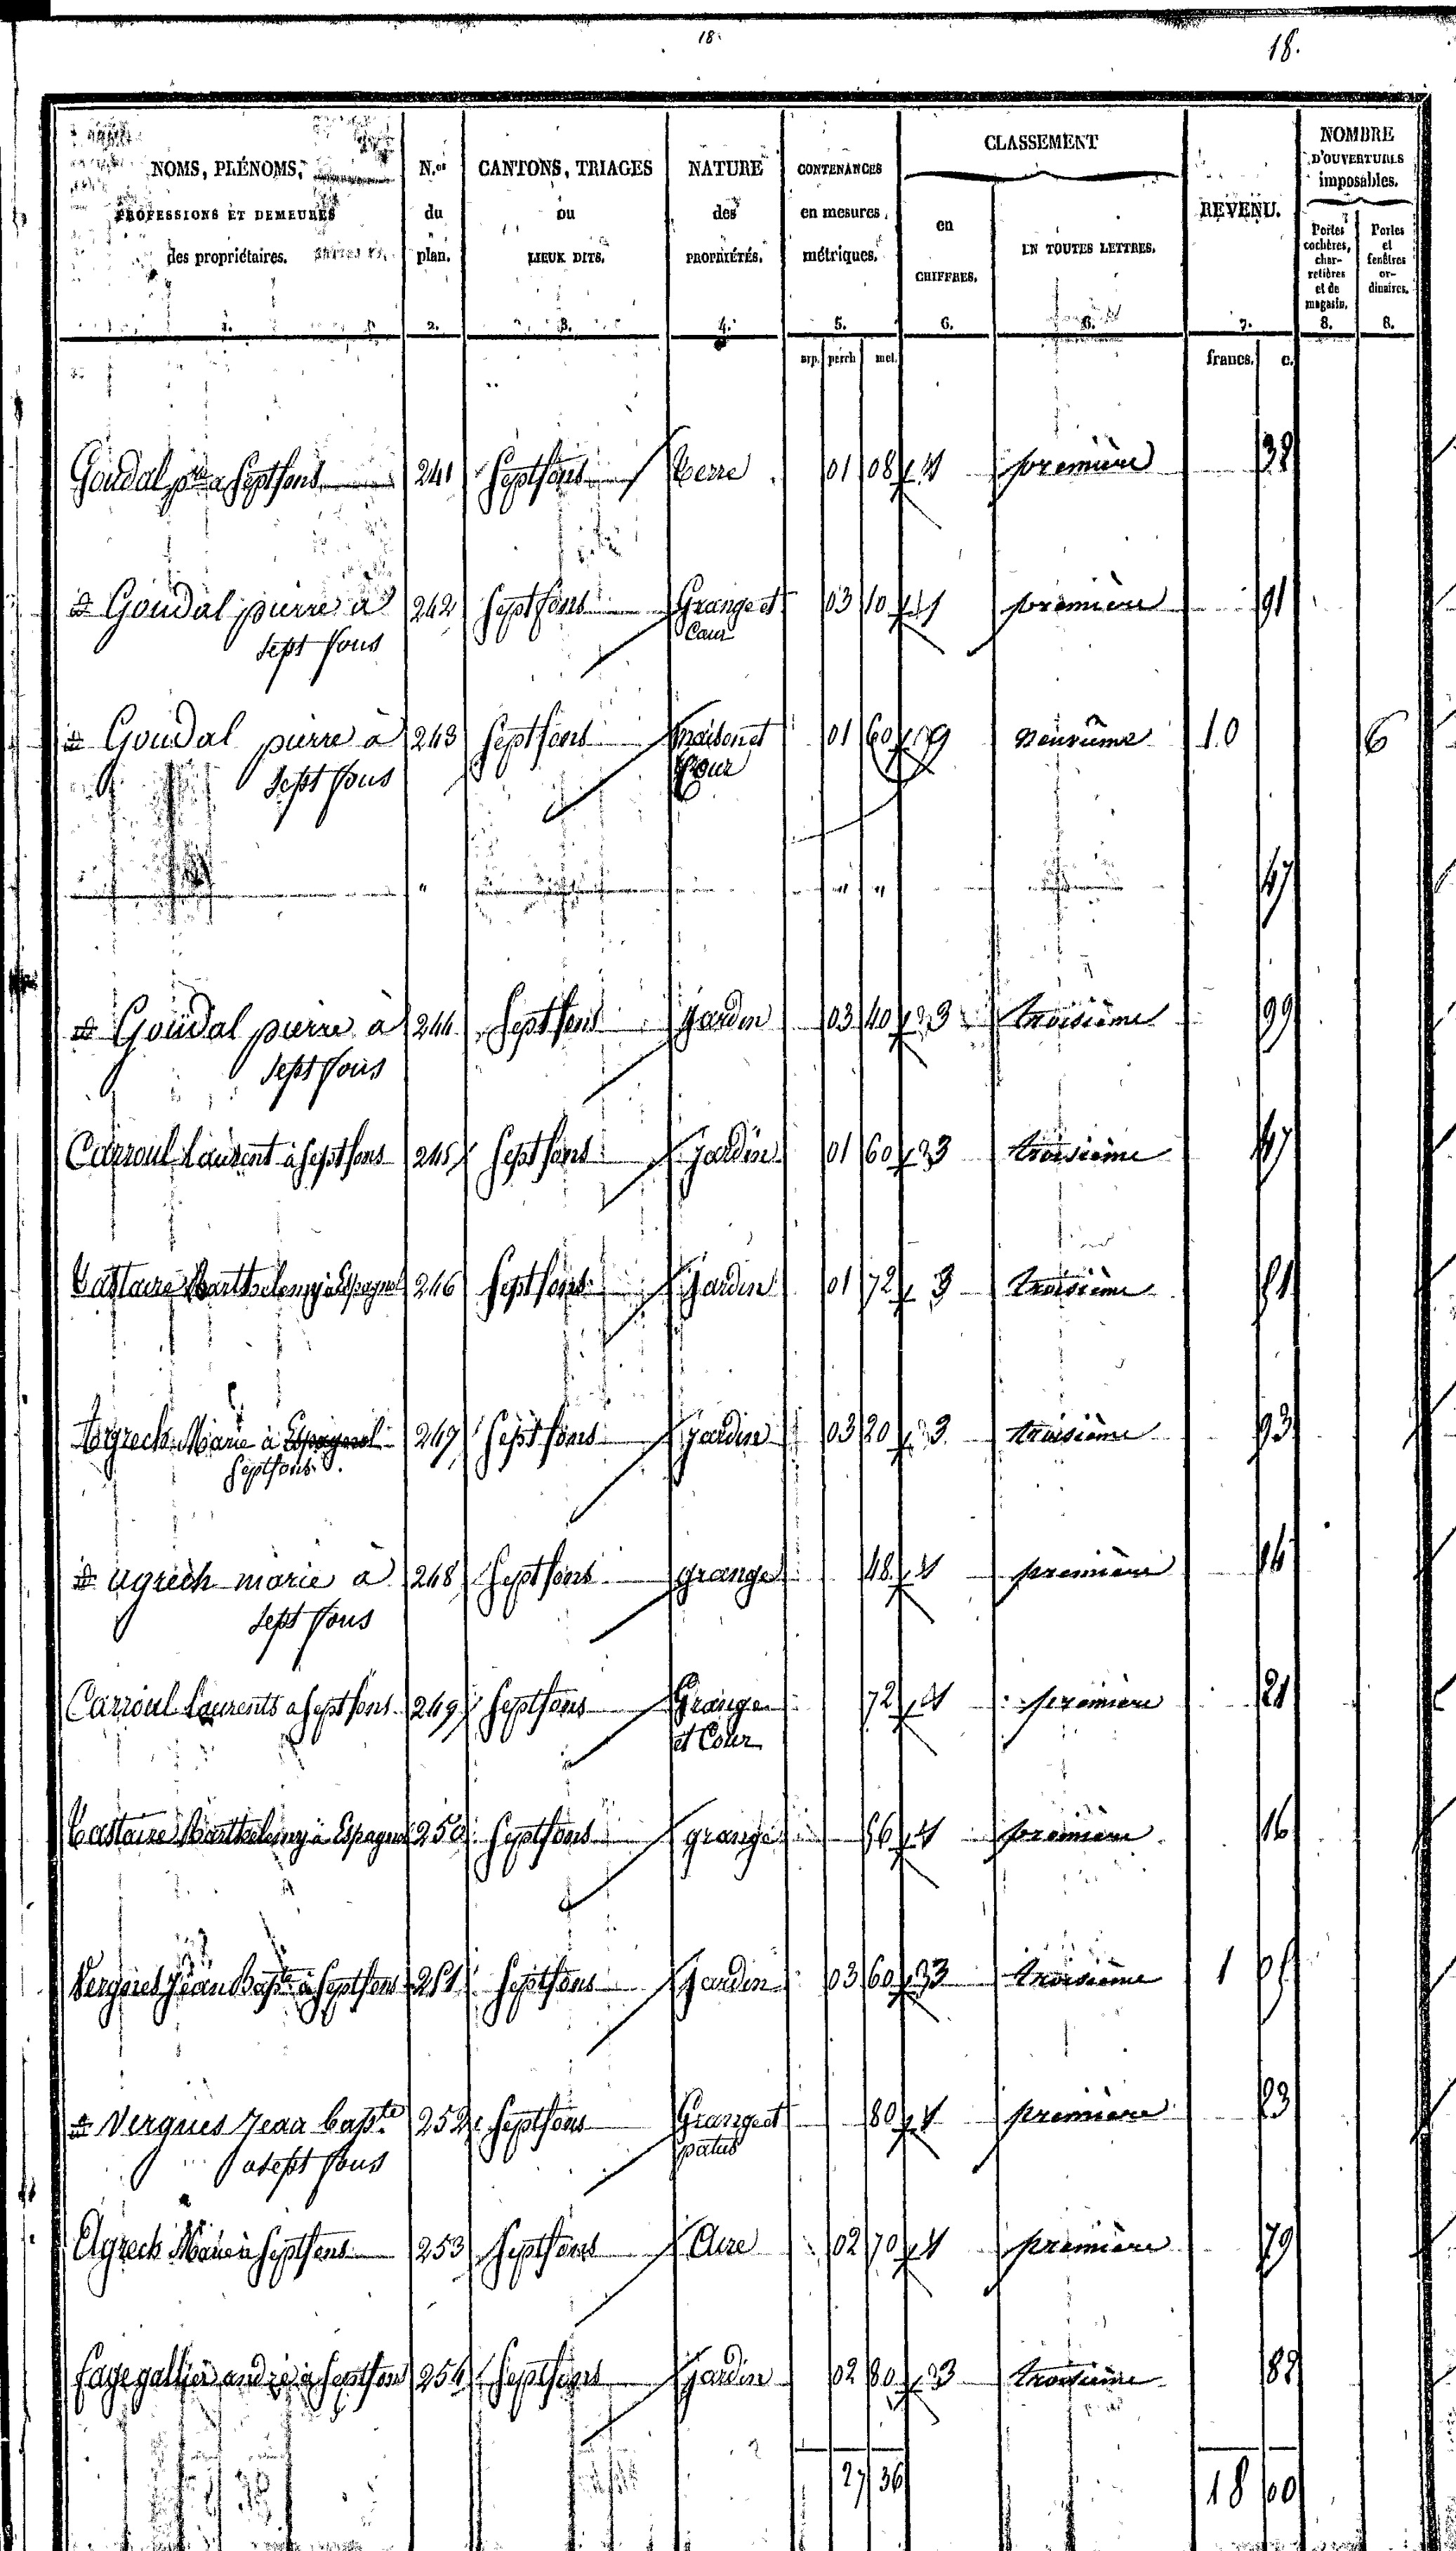 18.
18.
NOMS, PLÉNOMS, PROFESSIONS ET DEMEURES des propriétaires. 1.
N.os du plan. 2.
CANTONS, TRIAGES ou LIEUX DITS. 3.
NATURE des PROPRIÉTÉS. 4.
CONTENANCES en mesures métriques. 5.
CLASSEMENT
en CHIFFRES. 6.
EN TOUTES LETTRES. 6.
REVENU. 7.
NOMBRE D'OUVERTURES imposables.
Portes cochères, charretières et de magasin. 8.
Portes et fenêtres ordinaires. 8.
arp. perch met. francs. c.
Goudal pre a Septfons 241 Septfons terre 01 08 1 première 32
Goudal pierre à 242 Septfons Grange et 03 10 1 première 91
sept fons Cour
Goudal pierre à 243 Septfons maison et 01 60 9 neuvième 10 6
sept fons Cour
" " " 47
Goudal pierre à 244 Septfons jardin 03 40 3 troisième 99
sept fons
Carroul Laurent à Septfons 245 Septfons jardin 01 60 3 troisième 47
Castaire Barthelemy à Espagnol 246 Septfons jardin 01 72 3 troisième 51
Agrech Marie à Espagnol 247 Septfons jardin 03 20 3 troisième 93
Septfons.
agrech marie à 248 Septfons grange 48 1 première 14
sept fons
Carroul Laurents a Septfons 249 Septfons Grange 72 1 première 21
et Cour
Castaire Barthelemy à Espagnol 250 Septfons grange 56 1 première 16
Vergnes Jean Bapte à Septfons 251 Septfons jardin 03 60 3 troisième 1 05
Vergnes Jean bapte 252 Septfons Grange et 80 1 première 23
a sept fons patus
Agrech Marie à Septfons 253 Septfons Aire 02 70 1 première 79
Fage gallier andré à Septfons 254 Septfons jardin 02 80 3 troisième 82
27 36 18 00